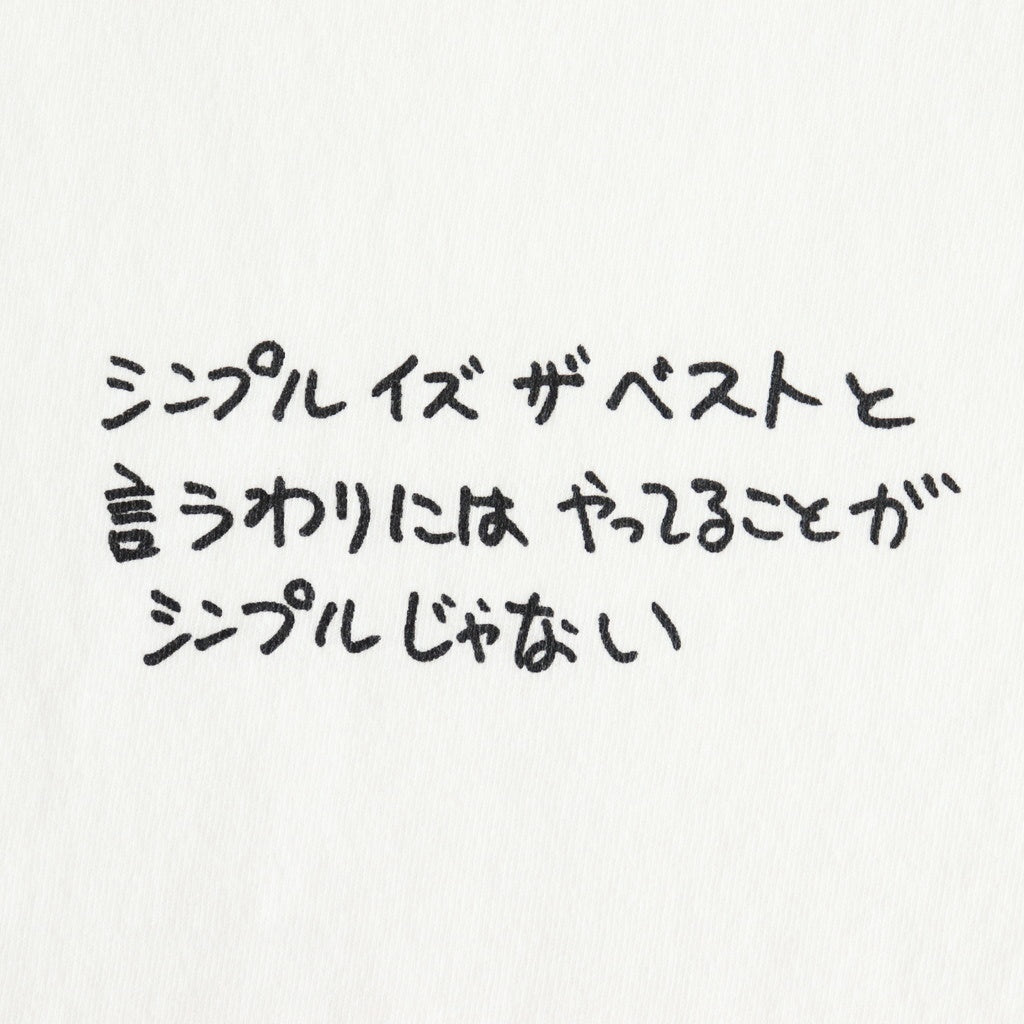 シンプル イズ ザ ベスト と
言うわりには やってることが
シンプルじゃない